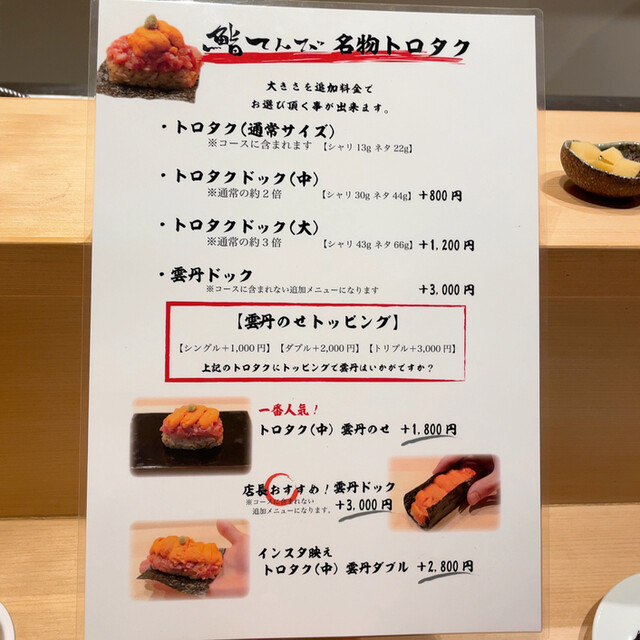 鮨てんぶ 名物トロタク
大きさを追加料金で
お選び頂く事が出来ます。
・トロタク(通常サイズ)
※コースに含まれます 【シャリ13g ネタ22g】
・トロタクドック(中)
※通常の約2倍 【シャリ30g ネタ44g】 +800円
・トロタクドック(大)
※通常の約3倍 【シャリ43g ネタ66g】 +1,200円
・雲丹ドック
※コースに含まれない追加メニューになります +3,000円
【雲丹のせトッピング】
【シングル+1,000円】【ダブル+2,000円】【トリプル+3,000円】
上記のトロタクにトッピングで雲丹はいかがですか?
一番人気!
トロタク(中) 雲丹のせ +1,800円
店長おすすめ!雲丹ドック
※コースに含まれない
追加メニューになります。 +3,000円
インスタ映え
トロタク(中) 雲丹ダブル +2,800円